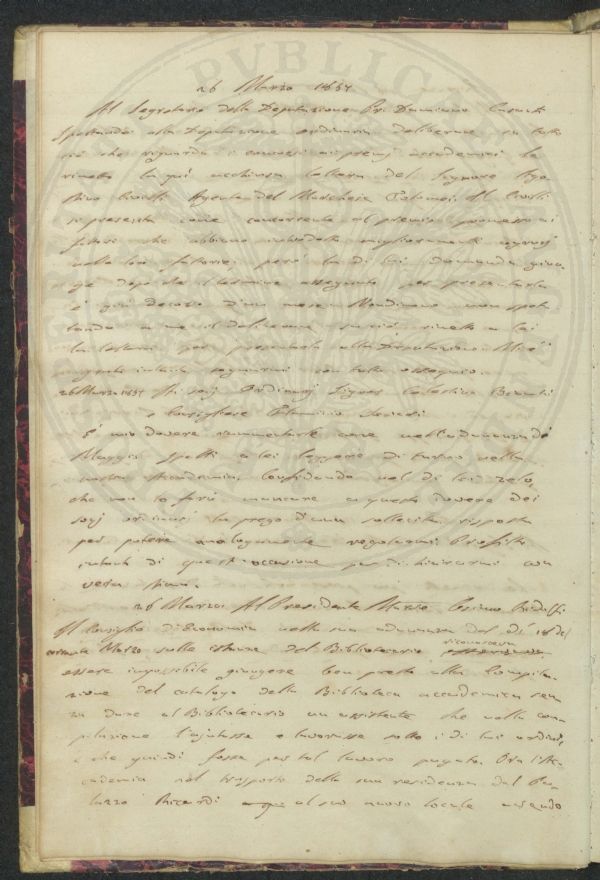 PVBLICAE
26 Marzo 1857
Al Segretario della Deputazione
Spettando alla Deputazione ordinaria deliberare su tutto
ciò che riguarda i concorsi ai premj accademici le
rimetto la qui acchiusa lettera del Signore
Agente del Marchese
si presenta come concorrente al premio promesso ai
fattori che abbiano introdotto miglioramenti agrarj
nelle loro fattorie, però la di lui domanda giun-
ge dopo che il termine assegnato per presentarla
è già decorso d'un mese Nondimeno non spet-
tando a me il deliberare su ciò rimetto a lei
la istanza per presentarla alla Deputazione Mi è
grato intanto segnarmi con tutto ossequio
26 Marzo 1857 Ai Socj Ordinarj Signor Celestino
e Consigliere
È mio dovere rammentarle come nell'adunanza di
Maggio spetti a lei leggere di turno nella
nostra Accademia, Confidando nel di lei zelo
che non le farà mancare a questo dovere dei
socj ordinarj la prego d'una sollecita risposta
per potere analogamente regolarmi Profitto
intanto di quest'occasione per dichiararmi con
vera stima
26 Marzo. Al Presidente Marchese Cosimo Ridolfi
Il Consiglio d'Economia nella sua adunanza del dì 18 del
corrente Marzo sulla istanza del Bibliotecario riconosceva
essere impossibile giungere ben presto alla compila-
zione del catalogo della Biblioteca accademica sen-
za dare al Bibliotecario un assistente che nella com-
pilazione l'ajutasse e lavorasse sotto i di lui ordini,
e che quindi fosse per tal lavoro pagato. Ora l'Ac-
cademia nel trasporto della sua residenza dal Pa-
lazzo Riccardi al suo nuovo locale avendo